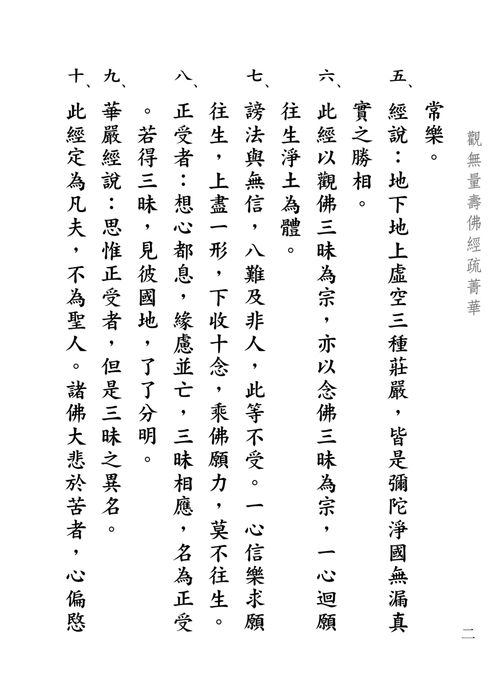 觀無量壽佛經疏菁華
常樂。
五、經說：地下地上虛空三種莊嚴，皆是彌陀淨國無漏真
實之勝相。
六、此經以觀佛三昧為宗，亦以念佛三昧為宗，一心迴願
往生淨土為體。
七、謗法與無信，八難及非人，此等不受。一心信樂求願
往生，上盡一形，下收十念，乘佛願力，莫不往生。
八、正受者：想心都息，緣慮並亡，三昧相應，名為正受
。若得三昧，見彼國地，了了分明。
九、華嚴經說：思惟正受者，但是三昧之異名。
十、此經定為凡夫，不為聖人。諸佛大悲於苦者，心偏愍
二